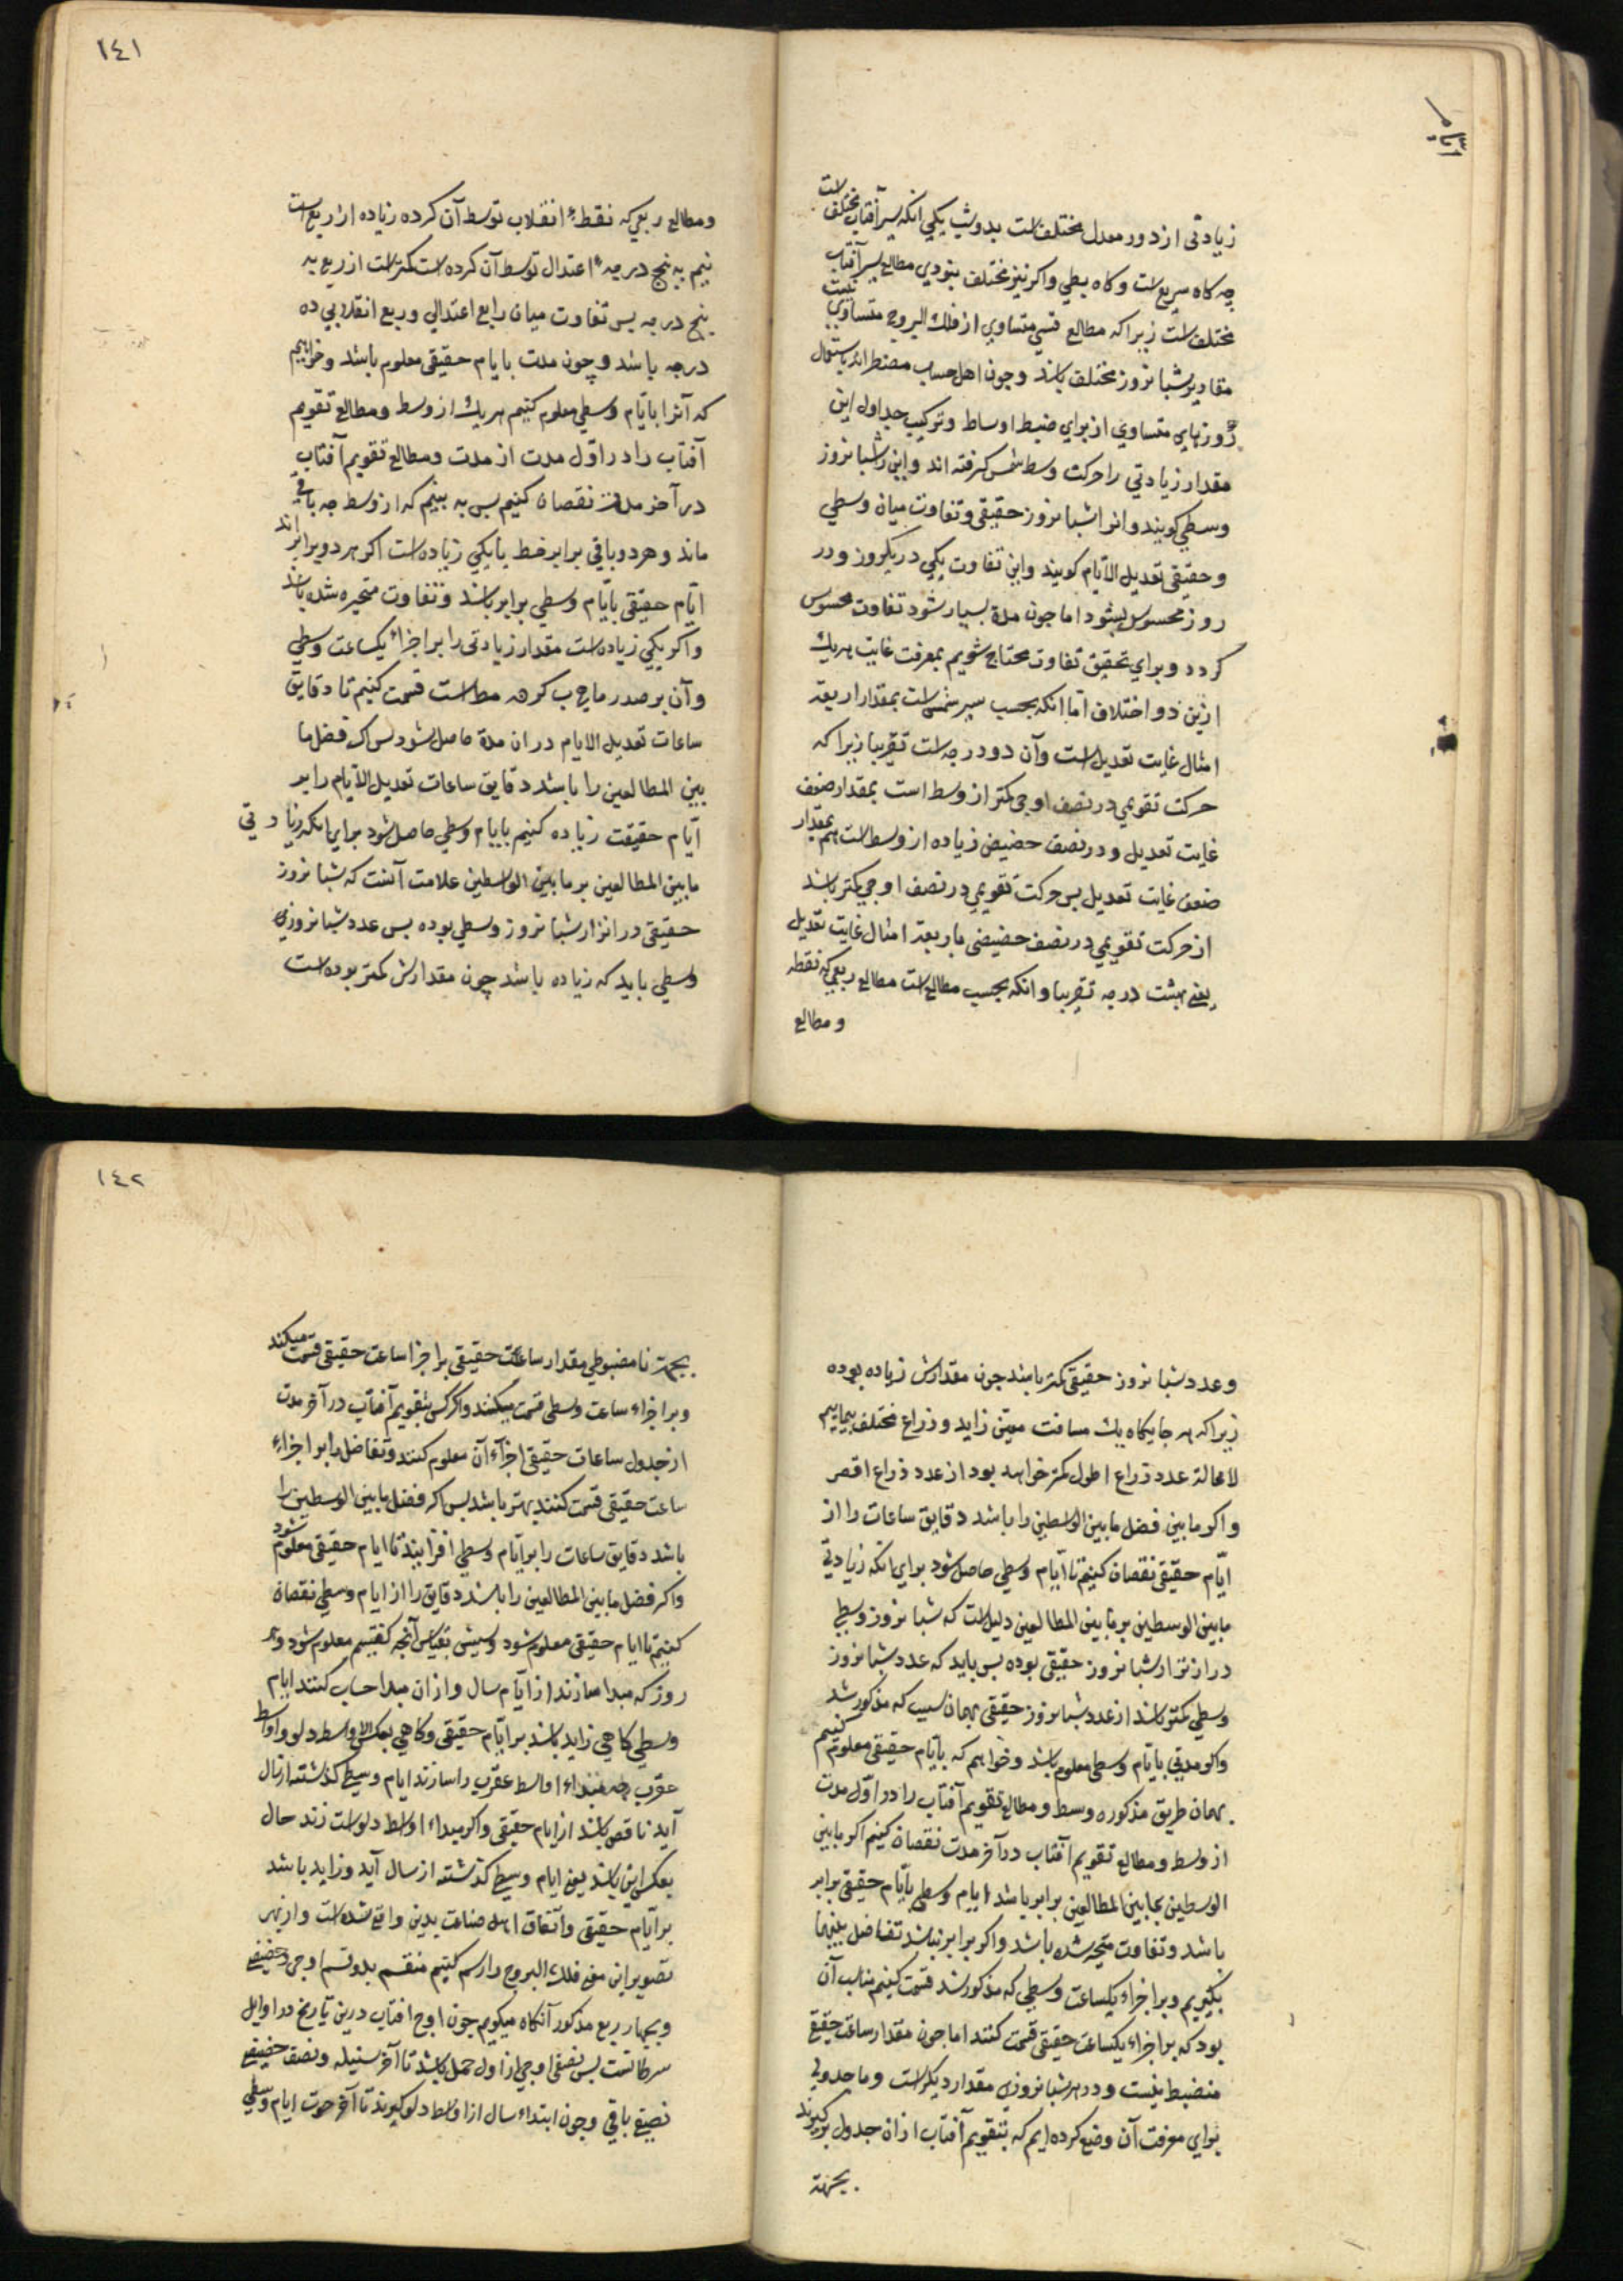 زیادتی از دور معدل مختلفست بدو سبب یکی آنکه سیر آفتاب مختلفست
چه کاه سریع است و کاه بطی و اکر نیز مختلف نبودی مطالع سیر آفتاب
مختلف است زیرا که مطالع قسی متساوی از فلك البروج متساوی نیست
مقادیر شبانروز مختلف باشد و چون اهل حساب مضطر اند باستعمال
روزهای متساوی از برای ضبط اوساط و ترکیب جداول این
مقدار زیادتی را حرکت وسط شمس کرفته اند و این را شبانروز
وسطی کویند و انرا شبانروز حقیقی و تفاوت میان وسطی
و حقیقی تعدیل الآیام کویند و این تفاوت یکی در یکروز و در
روز محسوس نشود اما چون مدة بسیار شود تفاوت محسوس
کردد و برای تحقیق تفاوت محتاج شویم بمعرفت غایت هریك
ازین دو اختلاف اما آنکه بحسب سیر شمس است بمقدار اربعة
امثال غایت تعدیل است و آن دو درجه است تقریبا زیرا که
حرکت تقویمی در نصف اوجی کمتر از وسط است بمقدار ضعف
غایت تعدیل و در نصف حضیض زیاده از وسط است هم بمقدار
ضعف غایت تعدیل بس حرکت تقویمی در نصف اوجی کمتر باشد
از حرکت تقویمی در نصف حضیضی باربعة امثال غایت تعدیل
یعنی هشت درجه تقریبا و آنکه بحسب مطالع است مطالع ربعی که نقطه
و مطالع
١٤١
و مطالع ربعی که نقطهٔ انقلاب توسط آن کرده زیاده از ربع است
نیم به پنج درجه اعتدال توسط آن کرده است کمتر است از ربع به
پنج درجه بس تفاوت میان رابع اعتدالی و ربع انقلابی ده
درجه باشد و چون مدت بایام حقیقی معلوم باشد و خواهیم
که آنرا بایّام وسطی معلوم کنیم هر یك از وسط و مطالع تقویم
آفتاب را در اوّل مدت از مدت و مطالع تقویم آفتاب
در آخر مدت نقصان کنیم بس به بینیم که از وسط چه باقی
ماند و هر دو باقی برابر اند یا یکی زیاده است اکر هر دو برابر
ایّام حقیقی بایّام وسطی برابر باشد و تفاوت متحیره شده باشد
و اکر یکی زیاده است مقدار زیادتی را بر اجزاء یکساعت وسطی
و آن بر صدر ما قسمت کنیم تا دقایق
ساعات تعدیل الایام در ان مدة حاصل شود بس اکر فضل ما
بین المطالعین را باشد دقایق ساعات تعدیل الآیام را بر
ایّام حقیقت زیاده کنیم بایام وسطی حاصل شود برای آنکه زیادتی
ما بین المطالعین بر ما بین الوسطین علامت آنست که شبانروز
حقیقی درازتر از شبانروز وسطی بوده بس عدد شبانروزی
وسطی باید که زیاده باشد چون مقدارش کمتر بوده است
و عدد شبانروز حقیقی کمتر باشد چون مقدارش زیاده بوده
زیرا که هر جایکاه یك مسافت معین زاید و ذراع مختلف بپیماییم
لا محالة عدد ذراع اطول کمتر خواهد بود از عدد ذراع اقصر
و اکر ما بین فضل ما بین الوسطین را باشد دقایق ساعات را از
ایّام حقیقی نقصان کنیم تا آیّام وسطی حاصل شود برای آنکه زیادتی
ما بین الوسطین بر ما بین المطالعین دلیل است که شبانروز وسطی
درازتر از شبانروز حقیقی بوده بس باید که عدد شبانروز
وسطی کمتر باشد از عدد شبانروز حقیقی بهمان سبب که مذکور شد
و اکر مدتی بایّام وسطی معلوم باشد و خواهیم که بایّام حقیقی معلوم کنیم
بهمان طریق مذکوره وسط و مطالع تقویم آفتاب را در اوّل مدت
از وسط و مطالع تقویم آفتاب در آخر مدت نقصان کنیم اکر ما بین
الوسطین بما بین المطالعین برابر باشد ایّام وسطی بآیّام حقیقی برابر
باشد و تفاوت متحیر شده باشد و اکر برابر نباشد تفاضل بینهما
بکیریم و بر اجزاء یکساعت وسطی که مذکور شد قسمت کنیم مناسب آن
بود که بر اجزاء یکساعت حقیقی قسمت کنند اما چون مقدار ساعت حقیقی
منضبط نیست و در هر شبانروزی مقدار دیکر است و ما جدولی
برای معرفت آن وضع کرده ایم که بتقویم آفتاب از ان جدول برکیرند
بجهة
١٤٢
بجهة نا مضبوطی مقدار ساعات حقیقی بر اجزا ساعت حقیقی قسمت میکند
و بر اجزاء ساعت وسطی قسمت میکنند و اکر کسی بتقویم آفتاب در آخر مدت
از جدول ساعات حقیقی اجزآء آن معلوم کنند و تفاضل را بر اجزاء
ساعت حقیقی قسمت کنند بهتر باشد بس اکر فضل ما بین الوسطین را
باشد دقایق ساعات را بر ایّام وسطی افزایند تا ایام حقیقی معلوم شود
و اکر فضل ما بین المطالعین را باشد دقایق را از ایام وسطی نقصان
کنیم تا ایام حقیقی معلوم شود بقیاس آنچه کفتیم معلوم شود و هر
روز که مبدا سازند از آیّام سال و از ان مبدا حساب کنند ایام
وسطی کاهی زاید باشد بر ایّام حقیقی و کاهی بعکس الا اواسط دلو و اواسط
عقرب چه مبداء اواسط عقرب را سازند ایام وسطی کذشته از سال
آید ناقص باشد از ایام حقیقی و اکر مبداء اواسط دلو است زند حال
بعکس این باشد یعنی ایام وسطی کذشته از سال آید و زاید باشد
بر آیّام حقیقی و اتّفاق اهل صناعت بدین واقع شده است و از بهر
تصویر این معنی فلك البروج را رسم کنیم منقسم بدو قسم اوجی و حضیضی
و بچهار ربع مذکور آنکاه میکویم چون اوج آفتاب درین تاریخ در اوایل
سرطانست بس نصف اوجی از اول حمل باشد تا آخر سنبله و نصف حضیضی
نصف باقی و چون ابتداء سال از اواسط دلو کیرند تا آخر حوت ایام وسطی